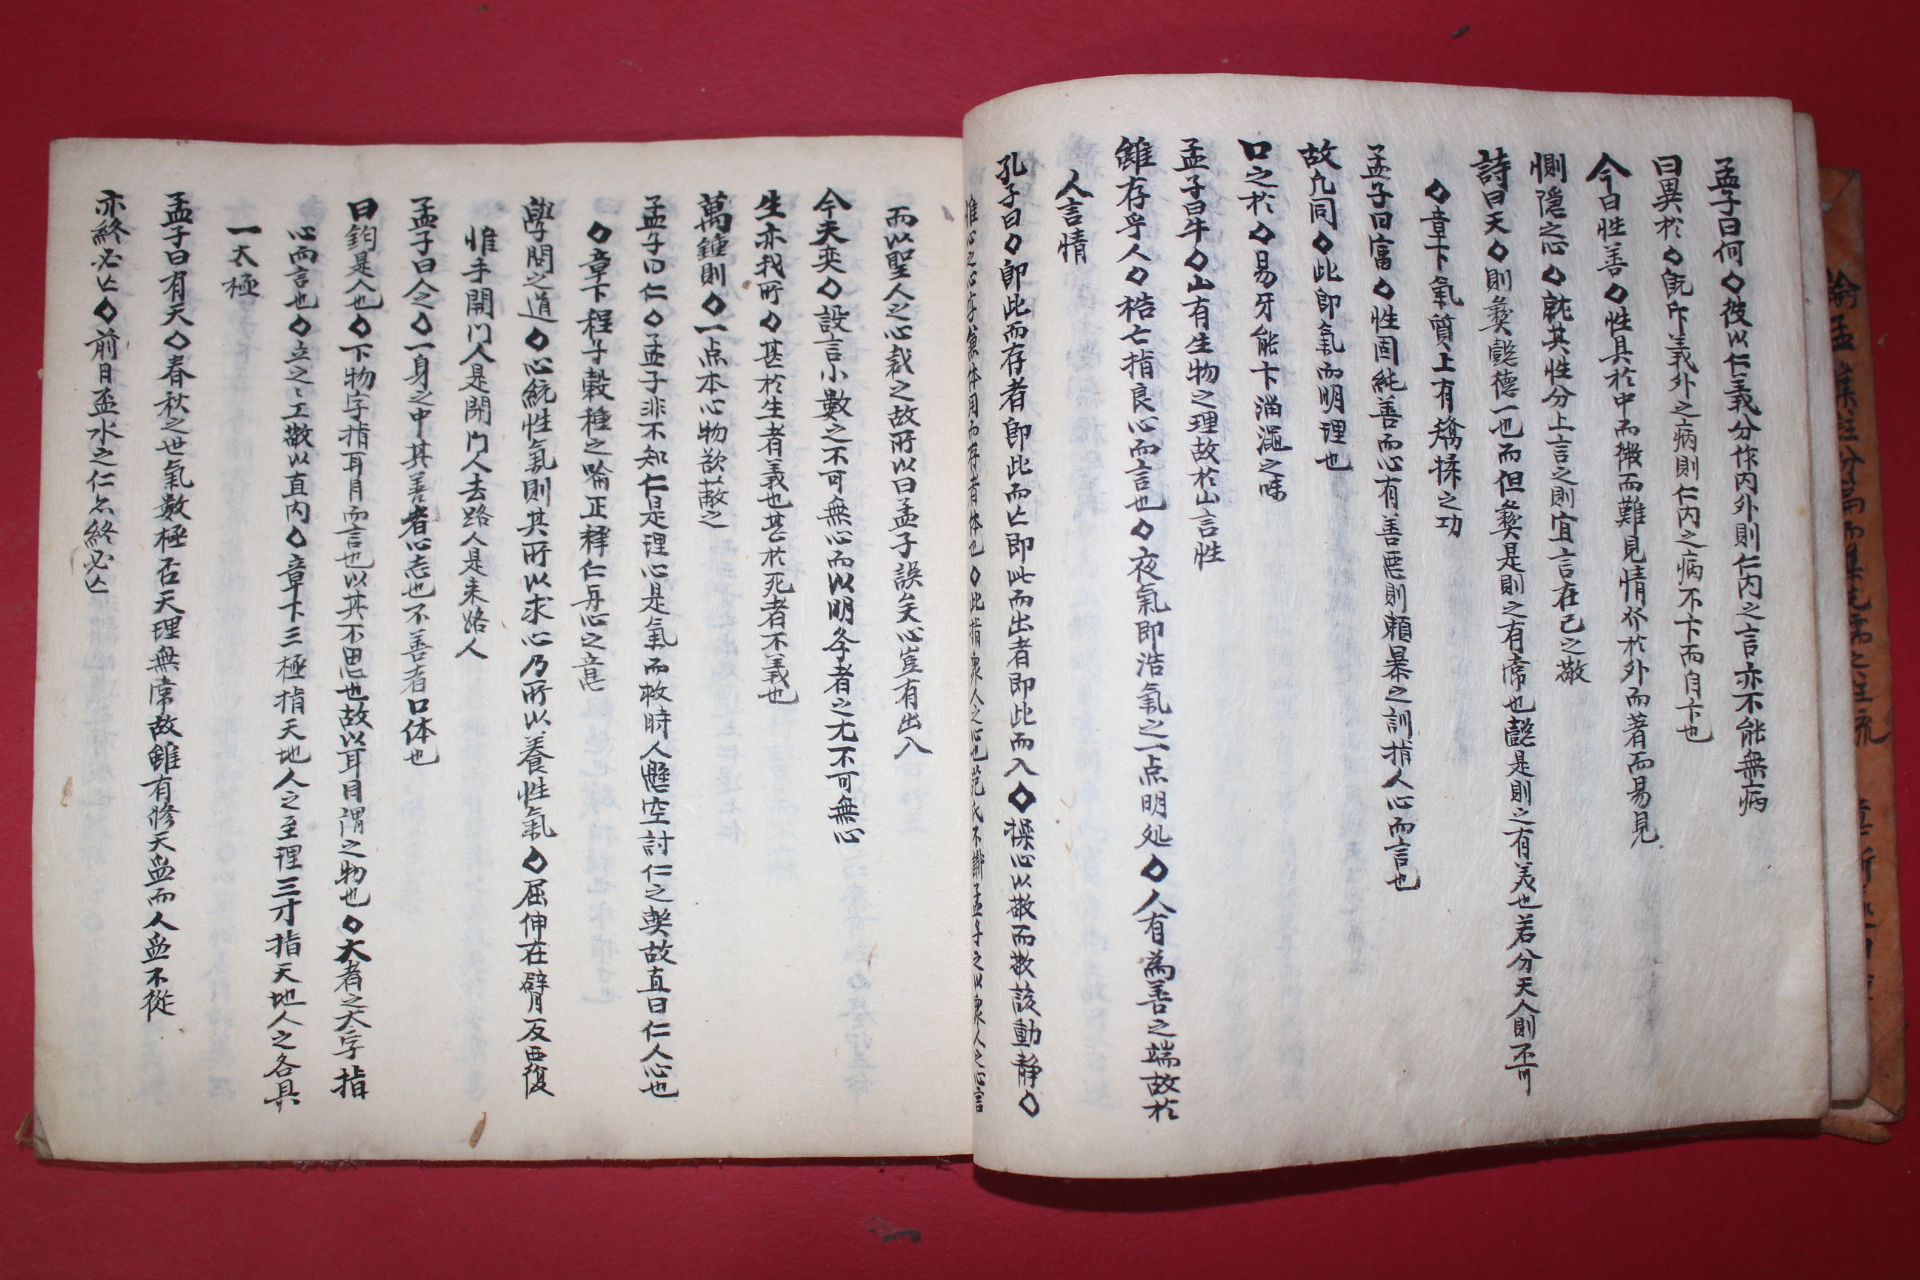 孟子曰何◇彼以仁義分作內外則仁內之言亦不能無病
曰異於◇旣斥義外之病則仁內之病不卞而自卞也
今曰性善◇性具於中而微而難見情發於外而著而易見
惻隱之心◇就其性分上言之則宜言在己之敬
詩曰天◇則彝懿德一也而但彝是則之有常也懿是則之有美也若分天人則不可
◇章下氣質上有矯揉之功
孟子曰富◇性固純善而心有善惡則賴暴之訓指人心而言也
故凡同◇此卽氣而明理也
口之於◇易牙能卞淄澠之味
孟子曰牛◇山有生物之理故於山言性
雖存乎人◇梏亡指良心而言也◇夜氣即浩氣之一点明処◇人有爲善之端故於
人言情
孔子曰◇卽此而存者卽此而亡即此而出者即此而入◇操心以敬而敬該動靜◇
惟心之心存兼体用而存者体也◇此指衆人之心也范氏不辨孟子之以衆人之心言
而以聖人之心裁之故所以曰孟子誤矣心豈有出入
今夫奕◇設言小數之不可無心而以明爲者之尤不可無心
生亦我所◇甚於生者義也甚於死者不義也
萬鍾則◇一点本心物欲以蔽之
孟子曰仁◇孟子非不知仁是理心是氣而救時人懸空討仁之弊故直曰仁人心也
◇章下程子穀種之喩正釋仁與心之意
學問之道◇心統性氣則其所以求心乃所以養性氣◇屈伸在臂反覆
惟手開門人是閉門人去路人是來路人
孟子曰人之◇一身之中其善者心志也不善者口体也
曰鈞是人也◇下物字指耳目而言也以其不思也故以耳目謂之物也◇大者之大字指
心而言也◇立之之工敬以直內◇章下三極指天地人之至理三才指天地人之各具
一太極
孟子曰有天◇春秋之世氣數極否天理無常故雖有修天爵而人爵不從
亦終必亡◇前日盃水之仁亦終必亡